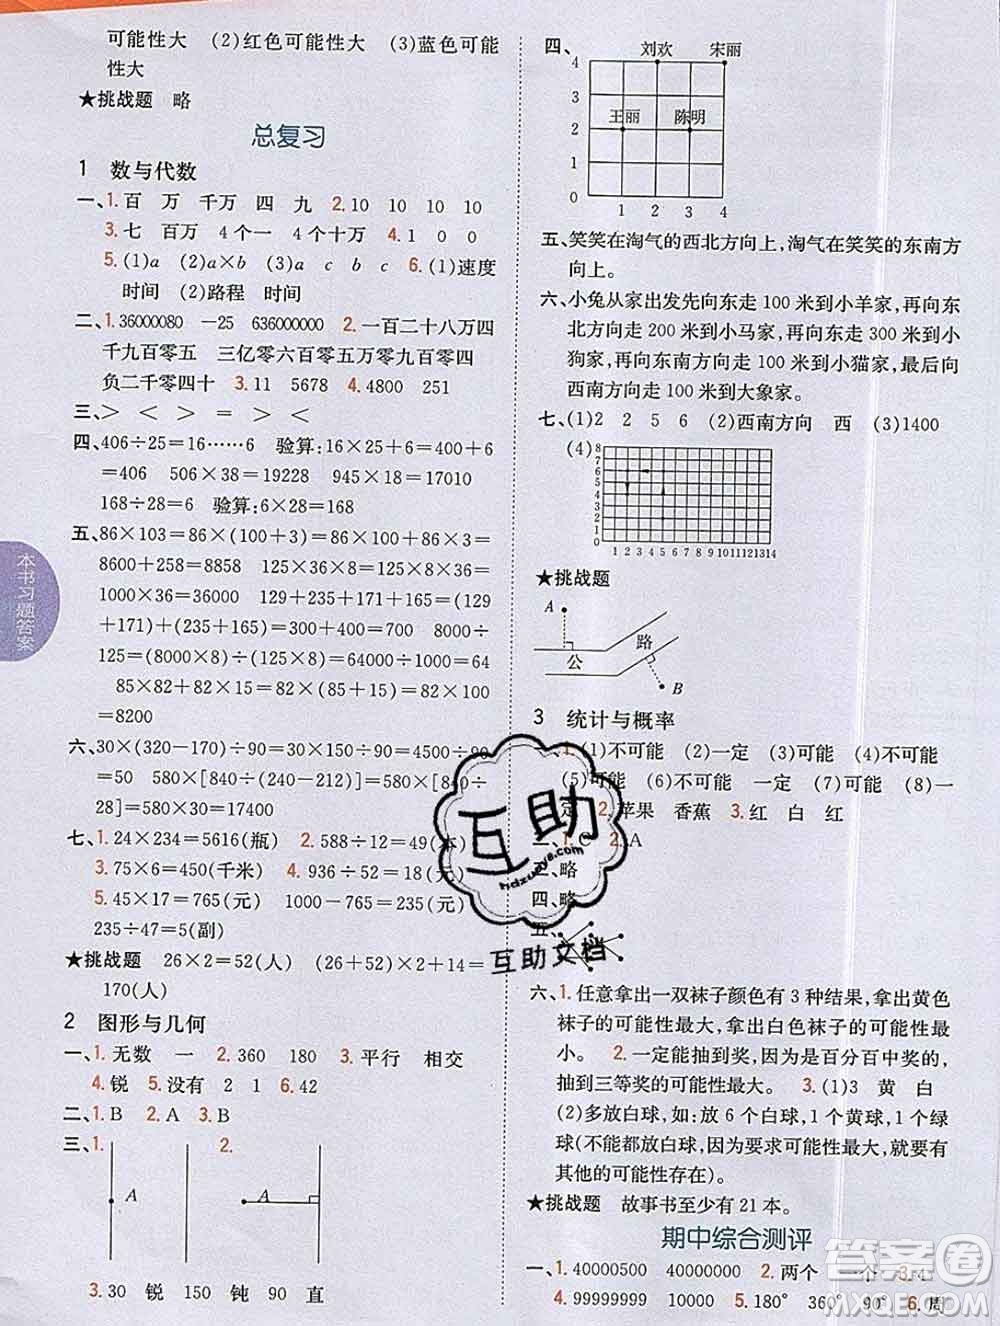 可能性大　(2)红色可能性大　(3)蓝色可能
性大
★挑战题　略
总复习
1　数与代数
一、1.百　万　千万　四　九　2.10　10　10　10
3.七　百万　4个一　4个十万　4.1　0　0
5.(1)a　(2)a×b　(3)a　c　b　c　6.(1)速度
时间　(2)路程　时间
二、1.36000080　-25　636000000　2.一百二十八万四
千九百零五　三亿零六百零五万零九百零四
负二千零四十　3.11　5678　4.4800　251
三、＞　＜　＞　＝　＞　＞
四、406÷25=16……6　验算:16×25+6=400+6
=406　506×38=19228　945×18=17010
168÷28=6　验算:6×28=168
五、86×103=86×(100+3)=86×100+86×3=
8600+258=8858　125×36×8=125×8×36=
1000×36=36000　129+235+171+165=(129
+171)+(235+165)=300+400=700　8000÷
125=(8000×8)÷(125×8)=64000÷1000=64
85×82+82×15=(85+15)×82=100×82
=8200
六、30×(320-170)÷90=30×150÷90=4500÷90
=50　580×[840÷(240-212)]=580×[840÷
28]=580×30=17400
七、1.24×234=5616(瓶)　2.588÷12=49(本)
3.75×6=450(千米)　4.936÷52=18(元)
5.45×17=765(元)　1000-765=235(元)
235÷47=5(副)
★挑战题　26×2=52(人)　(26+52)×2+14=
170(人)
2　图形与几何
一、1.无数　一　2.360　180　3.平行　相交
4.锐　5.没有　2　1　6.42
二、1.B　2.A　3.B
三、1.　2.
A　A
3.30　锐　150　钝　90　直
四、
刘欢　宋丽
王丽　陈明
4
3
2
1
0
1　2　3　4
五、笑笑在淘气的西北方向上,淘气在笑笑的东南方
向上。
六、小兔从家出发先向东走 100 米到小羊家,再向东
北方向走 200 米到小马家,再向东走 300 米到小
狗家,再向东南方向走 100 米到小猫家,最后向
西南方向走 100 米到大象家。
七、(1)2　2　5　6　(2)西南方向　西　(3)1400
(4)
8
7
6
5
4
3
2
1
0
1 2 3 4 5 6 7 8 9 10 11 12 13 14
★挑战题
A
公　路
B
3　统计与概率
一、1.(1)不可能　(2)一定　(3)可能　(4)不可能
(5)可能　(6)不可能　一定　(7)可能　(8)一
定　2.苹果　香蕉　3.红　白　红
二、1.C　2.A
三、略
四、略
五、
六、1.任意拿出一双袜子颜色有 3 种结果,拿出黄色
袜子的可能性最大,拿出白色袜子的可能性最
小。　2.一定能抽到奖,因为是百分百中奖的,
抽到三等奖的可能性最大。　3.(1)3　黄　白
(2)多放白球,如:放 6 个白球,1 个黄球,1 个绿
球(不能都放白球,因为要求可能性大,就要有
其他的可能性存在)。
★挑战题　故事书至少有 21 本。
期中综合测评
一、1.40000500　40000000　2.两个　一个　3.4
4.99999999　10000　5.180°　360°　90°　6.周
本书习题答案
互助
hdzuoye8.com
互助文档
答案圈
MXQE.COM